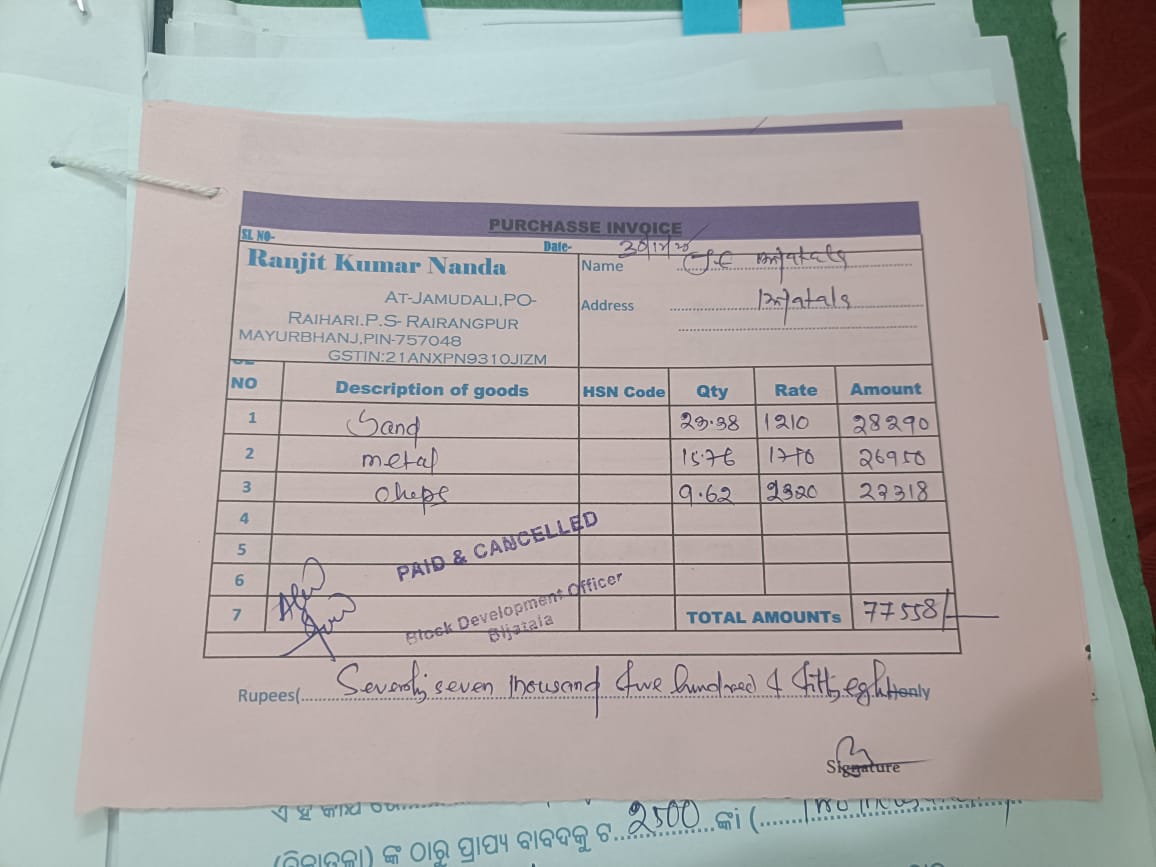 PURCHASSE INVOICE
SL NO-
Date- 30/12/20
Ranjit Kumar Nanda
AT-JAMUDALI,PO-
RAIHARI.P.S- RAIRANGPUR
MAYURBHANJ,PIN-757048
GSTIN:21ANXPN9310JIZM
Name
Address
NO Description of goods HSN Code Qty Rate Amount
1 Sand 23.38 1210 28290
2 metal 15.76 1710 26950
3 Cheps 9.62 2320 22318
4
5
6
7 TOTAL AMOUNTs 77558/-
PAID & CANCELLED
Block Development Officer
Bijatala
Rupees(... Seventy seven thousand five hundred & fifty eght only
Signature
ଠାରୁ ପ୍ରାପ୍ୟ ବାବଦକୁ ଟ 2500 ଙ୍କା (